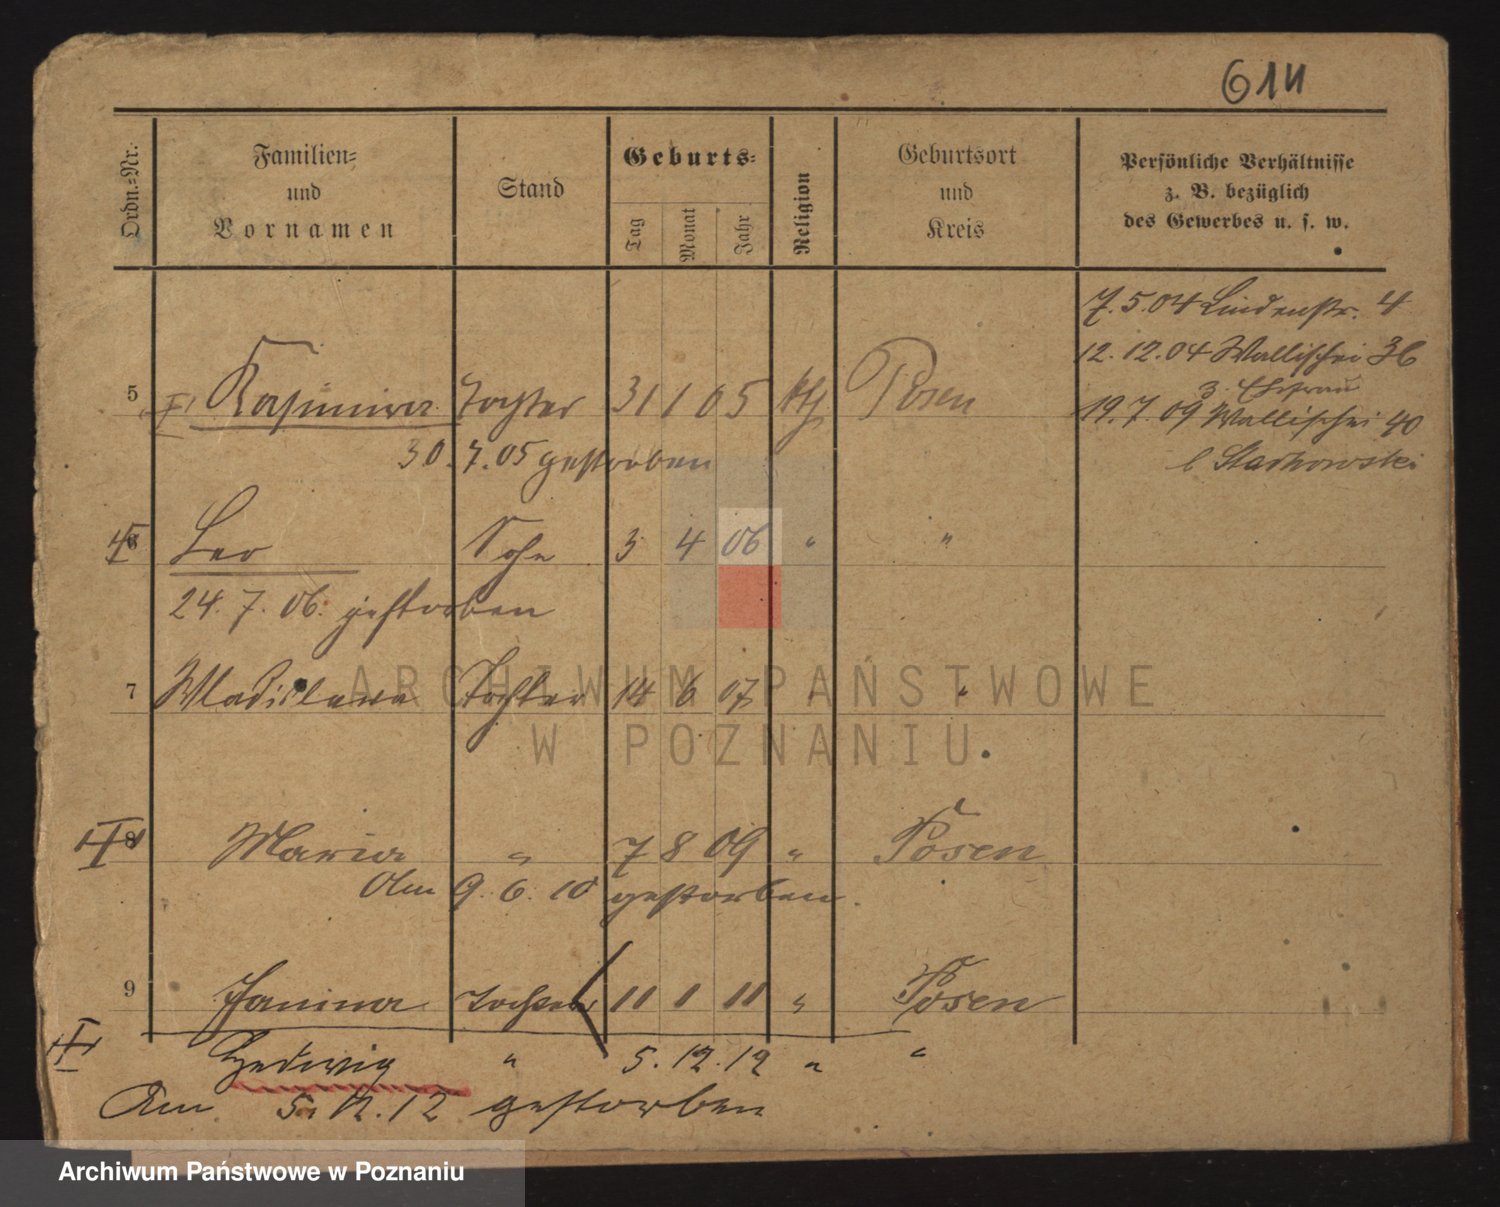 614
Ordn.-Nr. Familien- und Vornamen Stand Geburts- Tag Monat Jahr Religion Geburtsort und Kreis Persönliche Verhältnisse z. B. bezüglich des Gewerbes u. s. w.
7.5.04 Lindenstr. 4
12.12.04 Wallischei 36
z. Ehefrau
19.7.09 Wallischei 40
b Starkowski
5 Kasimira Tochter 31 1 05 kth Posen
30.7.05 gestorben
6 Leo Sohn 3 4 06 " "
24.7.06. gestorben
7 Wladislawa Tochter 14 6 07 " "
8 Maria " 7 8 09 " Posen
Am 9.6.10 gestorben.
9 Janina Tochter 11 1 11 " Posen
Hedwig " 5.12.12 " "
Am 5.12.12 gestorben
ARCHIWUM PAŃSTWOWE
W POZNANIU
Archiwum Państwowe w Poznaniu